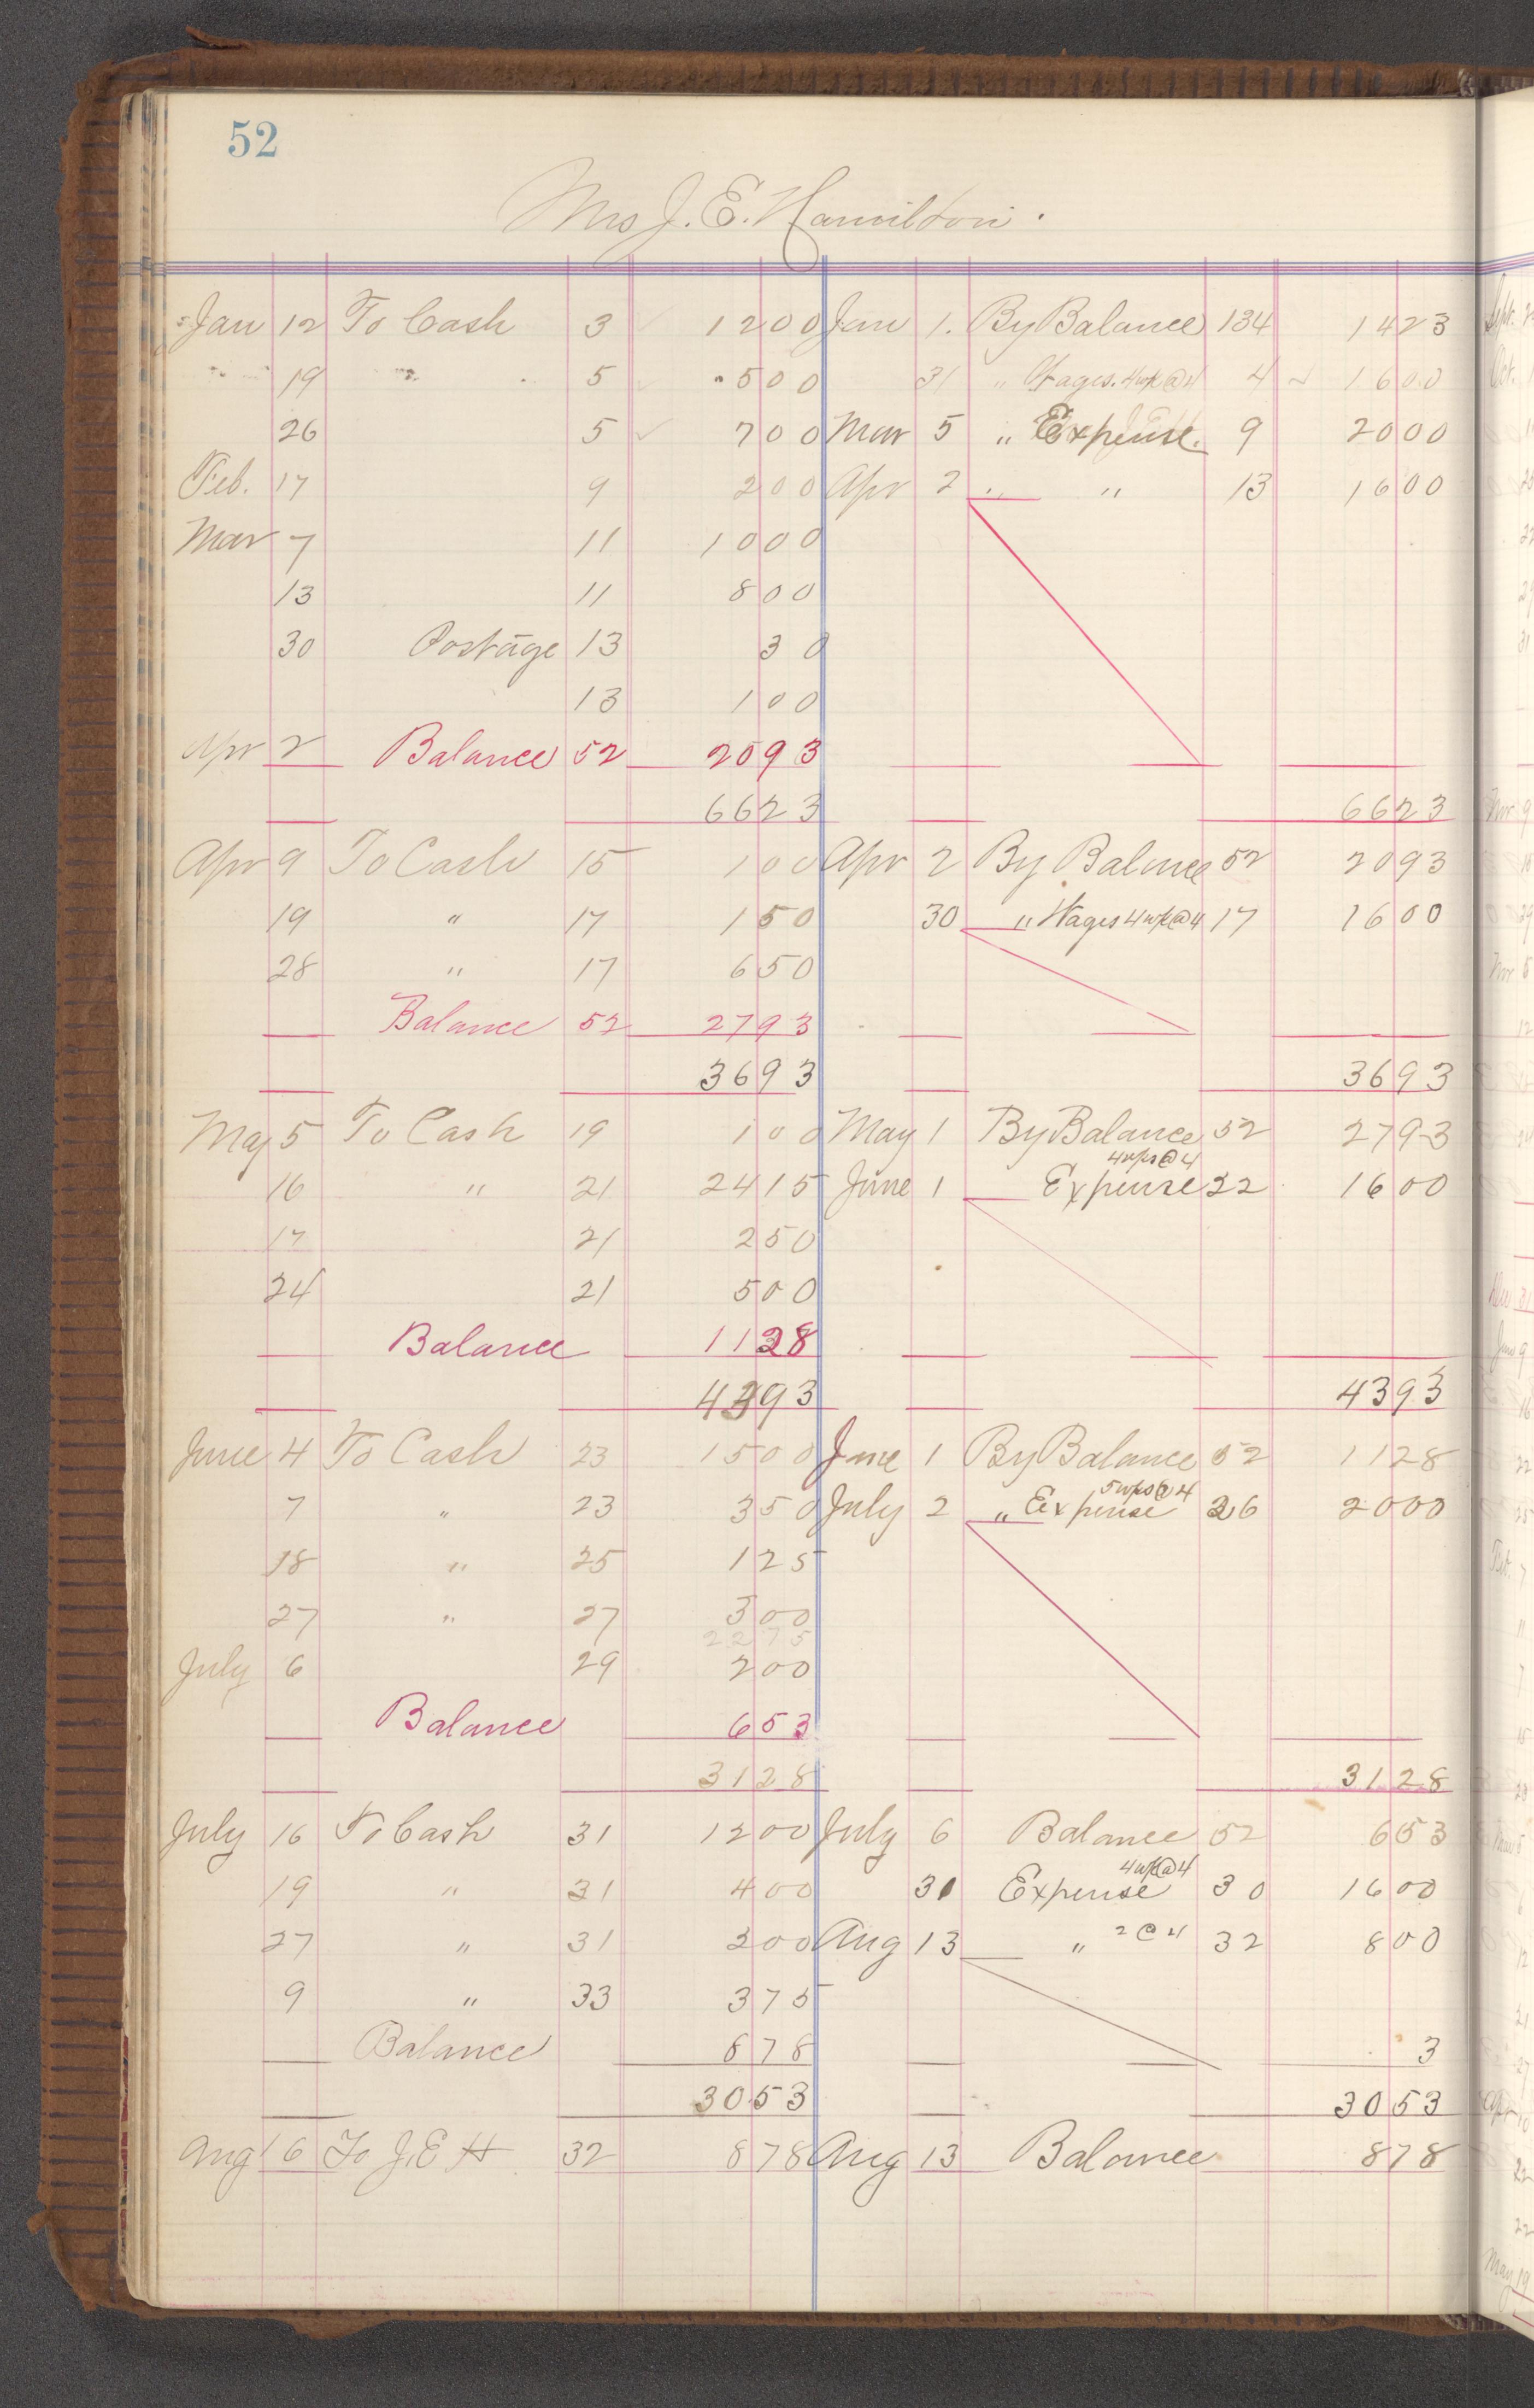 52
Mrs J. E. Hamilton.
Jan 12 To Cash 3 1200 Jan 1. By Balance 134 1423
" 19 " 5 500 31 " Wages. 4wk@4 4 1600
26 5 700 Mar 5 " Expense. 9 2000
Feb. 17 9 200 Apr 2 " " 13 1600
Mar 7 11 1000
13 11 800
30 Postage 13 30
13 100
Apr 2 Balance 52 2093
6623 6623
Apr 9 To Cash 15 100 Apr 2 By Balance 52 2093
19 " 17 150 30 " Wages 4wk@4 17 1600
28 " 17 650
Balance 52 2793
3693 3693
May 5 To Cash 19 100 May 1 By Balance 52 2793
4wks@4
16 " 21 2415 June 1 Expense 22 1600
17 21 250
24 21 500
Balance 1128
4393 4393
June 4 To Cash 23 1500 June 1 By Balance 52 1128
5wks@4
7 " 23 350 July 2 " Expense 26 2000
18 " 25 125
27 " 27 300
2275
July 6 29 200
Balance 653
3128 3128
July 16 To Cash 31 1200 July 6 Balance 52 653
4wk@4
19 " 31 400 31 Expense 30 1600
27 " 31 200 Aug 13 " 2@4 32 800
9 " 33 375
Balance 878 3
3053 3053
Aug 16 To J. E H 32 878 Aug 13 Balance 878